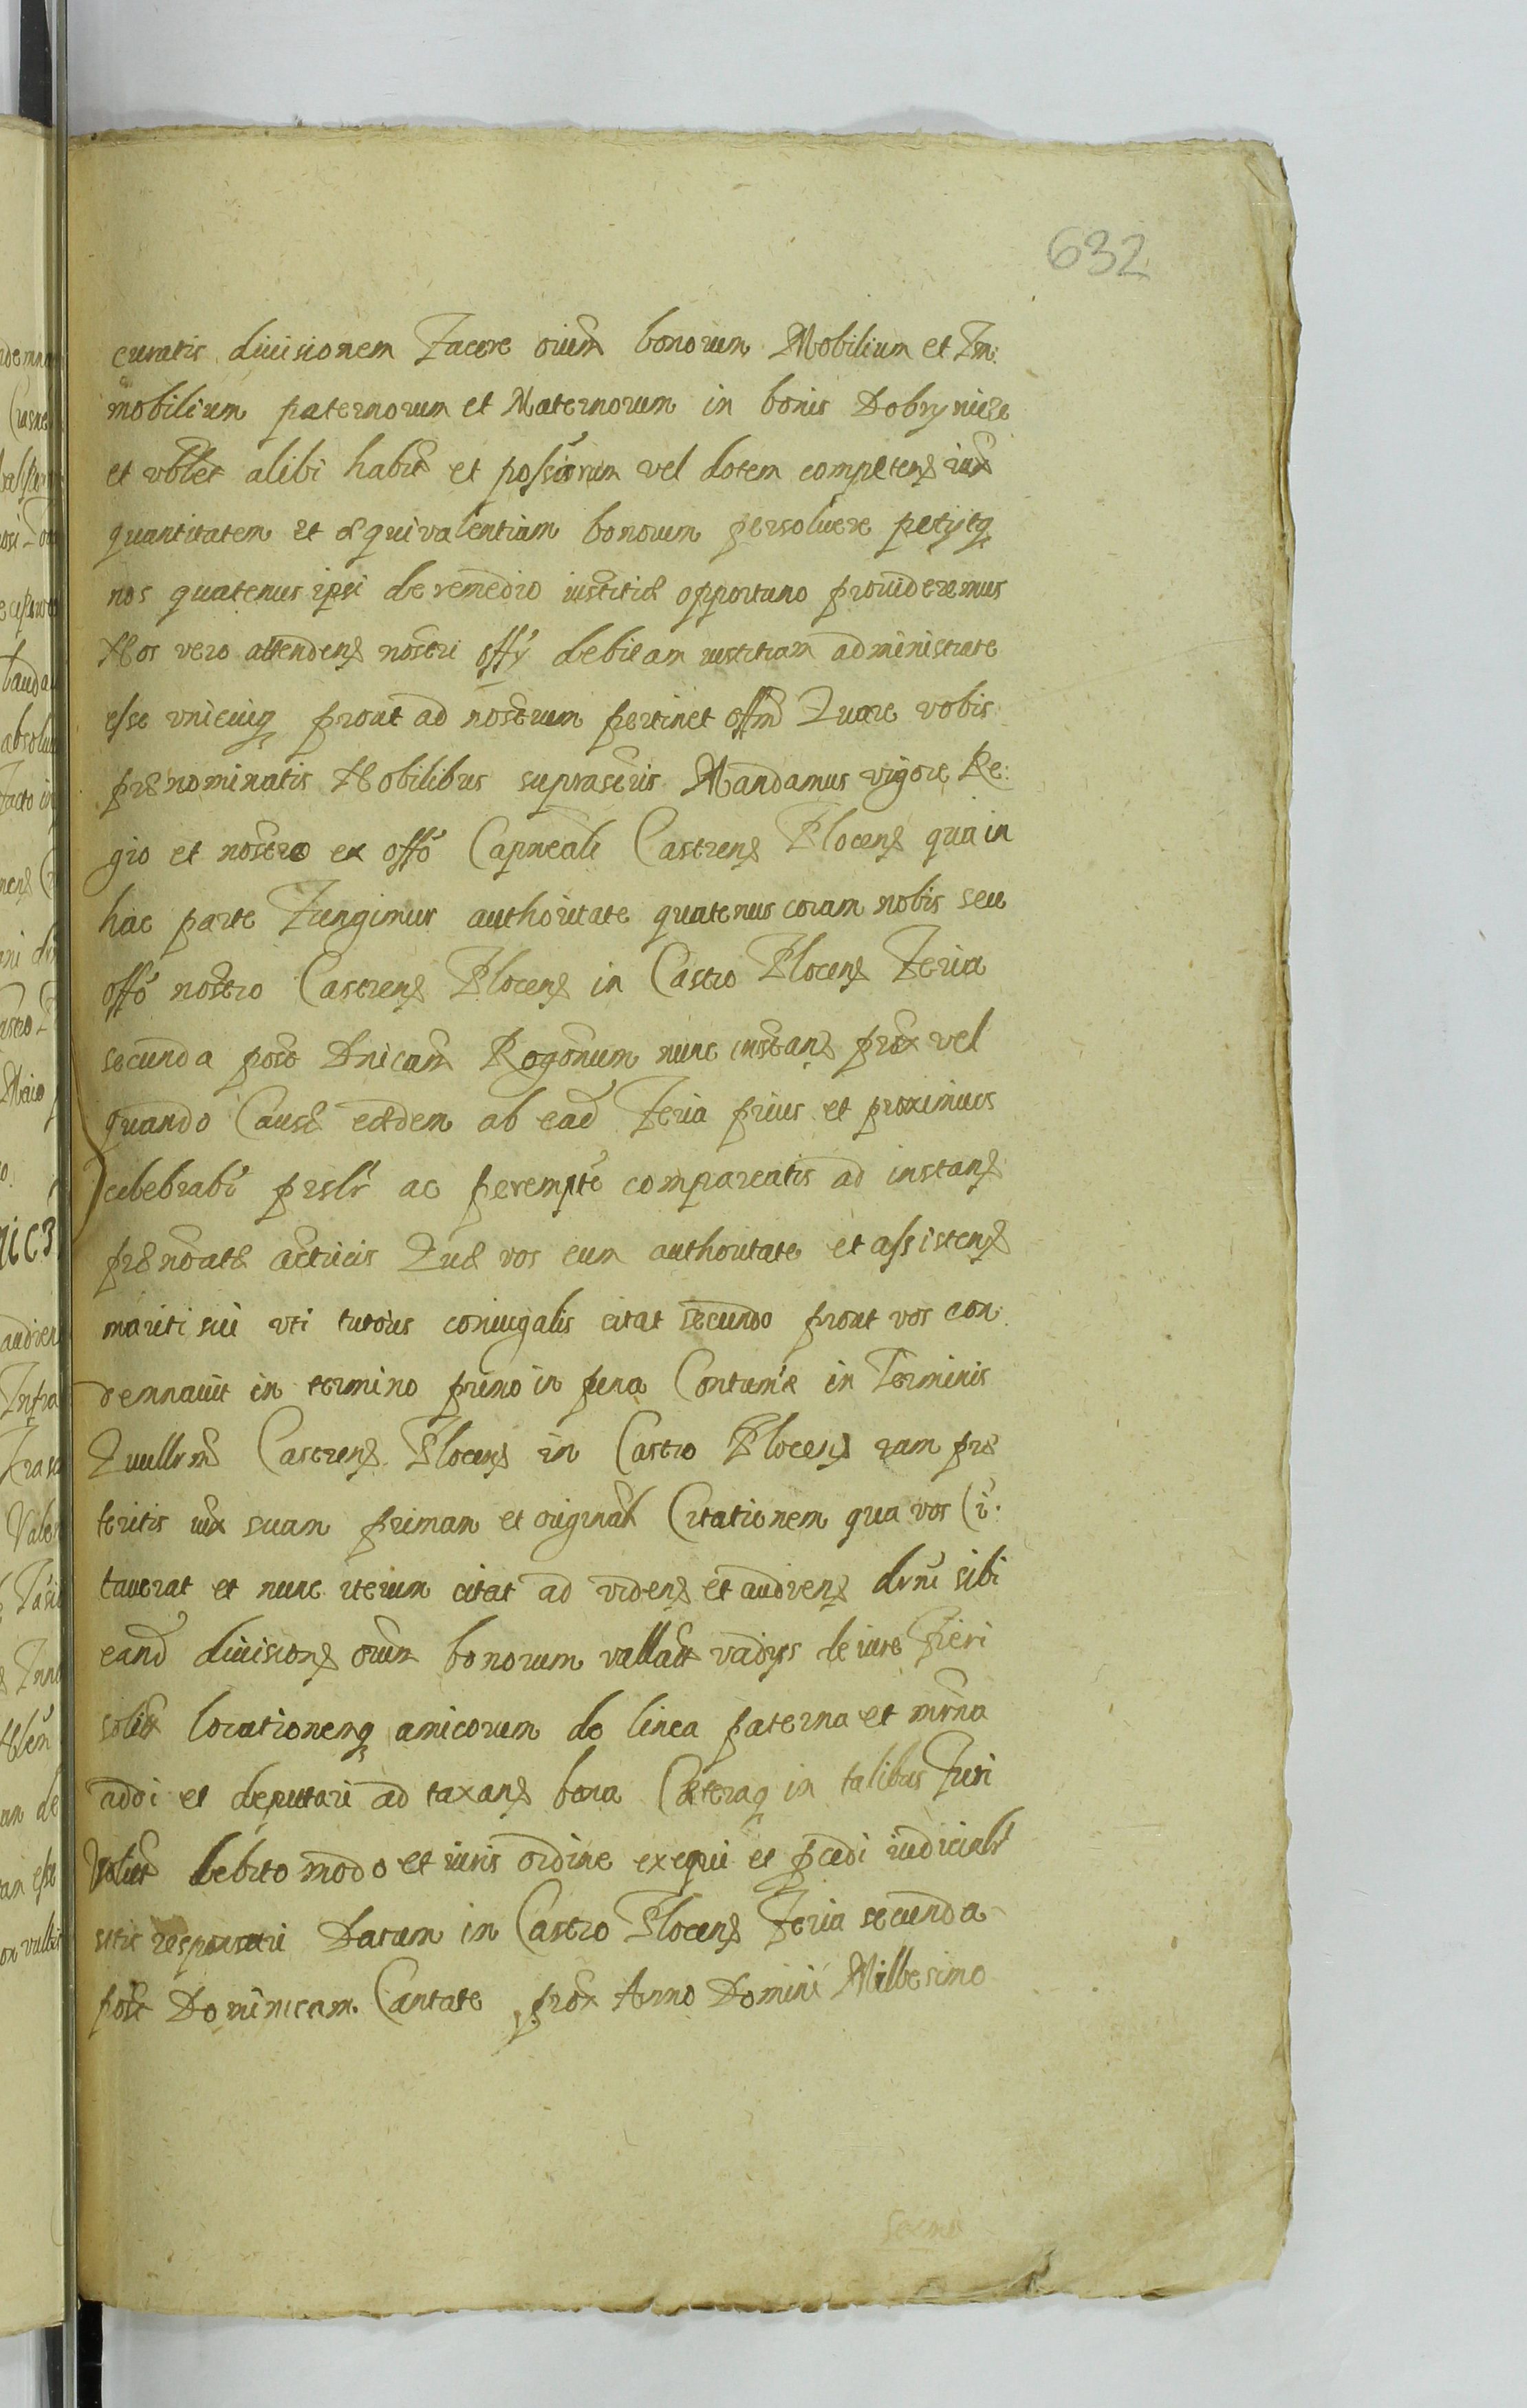 632
curatis divisionem Facere oium bonorum Mobilium et Im:
mobilium paternorum et Maternorum in bonis Dobrynice
et vbllt alibi habit et possorum vel dotem competens iux
quantitatem et æquivalentiam bonorum persoluere petijtq
nos quatenus ipsi de remedio iustitiæ opportuno prouideremus
Nos vero attendens nostri offy debitam iustitiam administrate
esse vnicuiq prout ad nostrum pertinet offm Quare vobis
prænominatis Nobilibus suprascris Mandamus vigore Re:
gio et nostro ex offo Capneali Castrens Plocens qua in
hac parte Fungimur authoritate quatenus coram nobis seu
offo nostro Castrens Plocens in Castro Plocens Feria
secunda post Dnicam Rogonum nunc instans prox vel
quando Causæ eædem ab ead Feria prius et proximius
celebrabr prslr ac perempte compareatis ad instans
prænoatæ actricis Quæ vos cum authoritate et assistens
mariti sui vti tutoris coniugalis citat secundo prout vos con:
demnauit in termino primo in pena Contumæ in Terminis
Quullrm Castrens Plocens in Castro Plocens iam præ
teritis iux suam primam et originalt Citationem qua vos Ci:
tauerat et nunc iterum citat ad videns et audiens
eand divisions oium bonorum vallatt vadys de iure Fieri
solitt locationemq amicorum de linea paterna et mrna
addi et deputari ad taxans bona Cæteraq in talibus Iuri
debito modo et iuris ordine exequi et pcedi iudicialr
sitis responsuri Datum in Castro Plocens Feria secunda
post Dominicam Cantate prox Anno Domini Millesimo